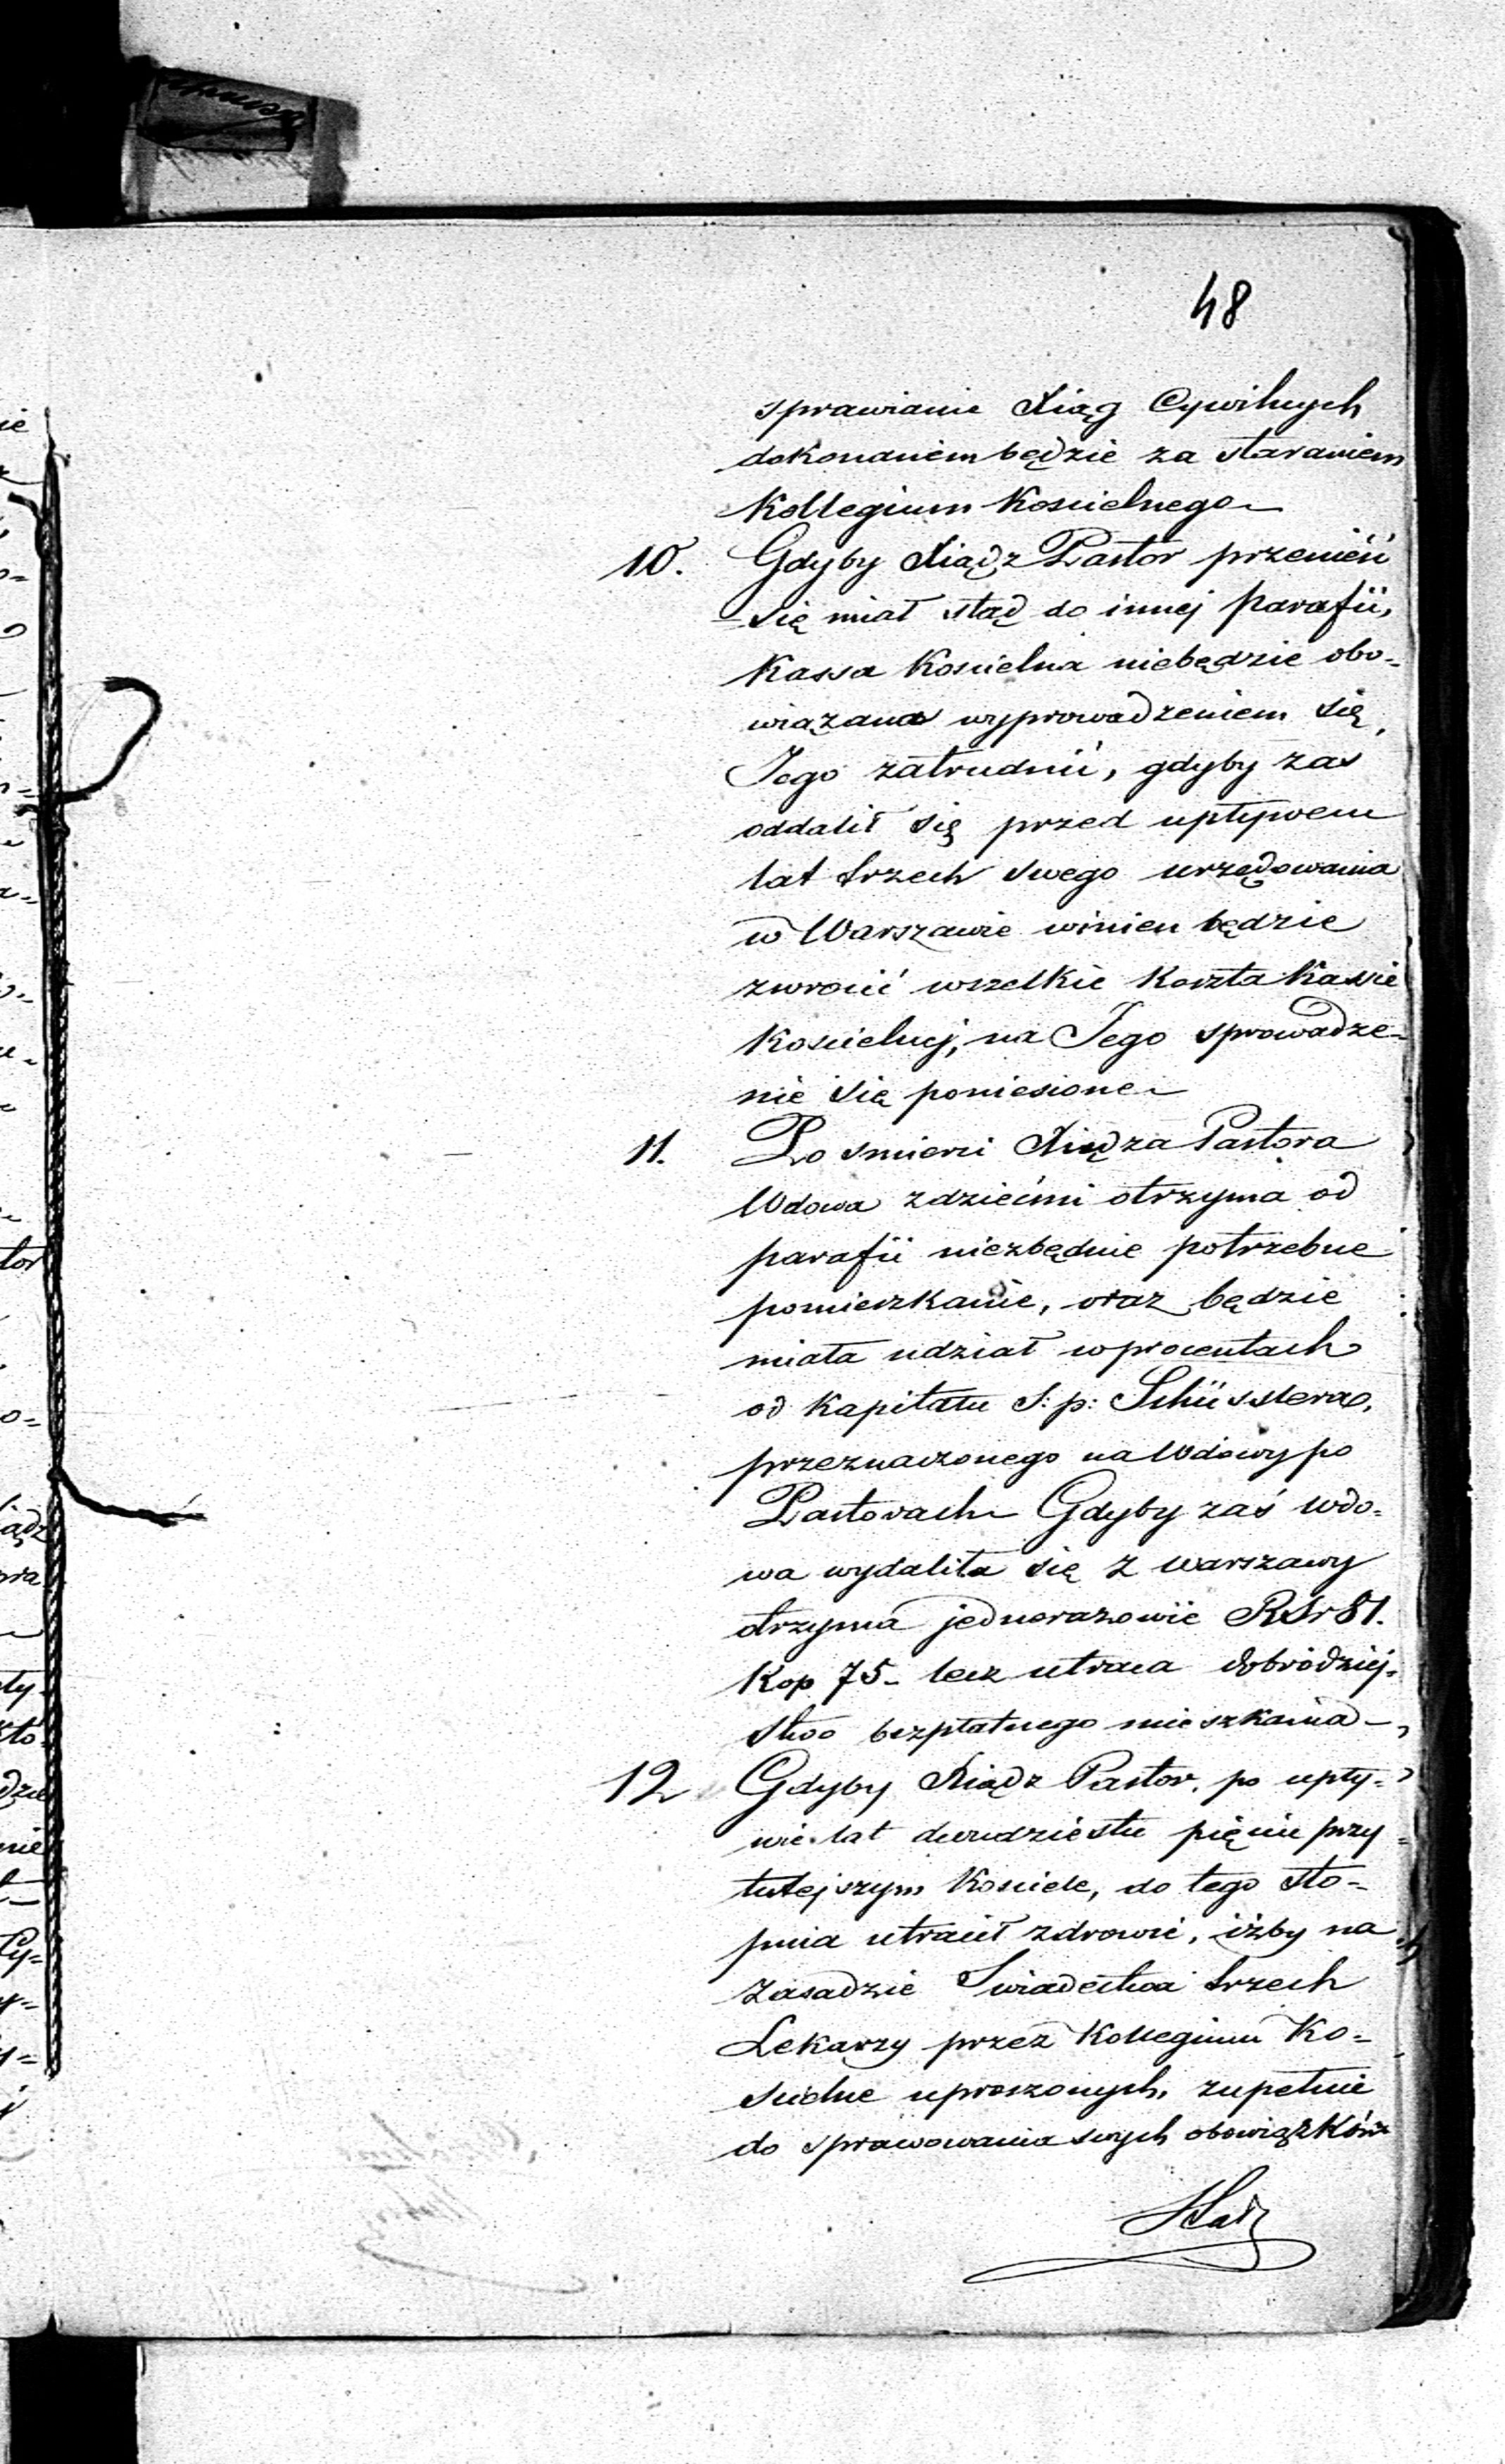 48
sprawianie Xiąg Cywilnych
dokonaniem będzie za staraniem
Kollegium Koscielnego
10. Gdyby Xiądz Pastor przenieść
się miał stąd do innej Parafii,
Kassa Koscielna niebędzie obo-
wiązana wyprowadzeniem się
Jego zatrudnić, gdyby zas
oddalił się przed upływem
lat trzech swego urzędowania
w Warszawie winien będzie
zwrocić wszelkie koszta Kassie
Koscielnej, na Jego sprowadze-
nie się poniesione
11. Po smierci Xiędza Pastora
Wdowa zdziećmi otrzyma od
parafii niezbędnie potrzebne
pomieszkanie, oraz będzie
miała udział w procentach
od Kapitału S: p: Schüsslera,
przeznaczonego na Wdowy po
Pastorach Gdyby zaś Wdo-
wa wydaliła się z Warszawy
otrzyma jednorazowie RSr 81.
Kop 75 - lecz utraca dobrodziej-
stwo bezpłatnego mieszkania -
12 Gdyby Xiądz Pastor, po upły-
wie lat dwudziestu pięciu przy
tutejszym Kosciele, do tego sto-
pnia utracił zdrowie, iżby na
zasadzie Swiadectwa trzech
Lekarzy przez Kollegium Ko-
scielne uproszonych, zupełnie
do sprawowania swych obowiązków